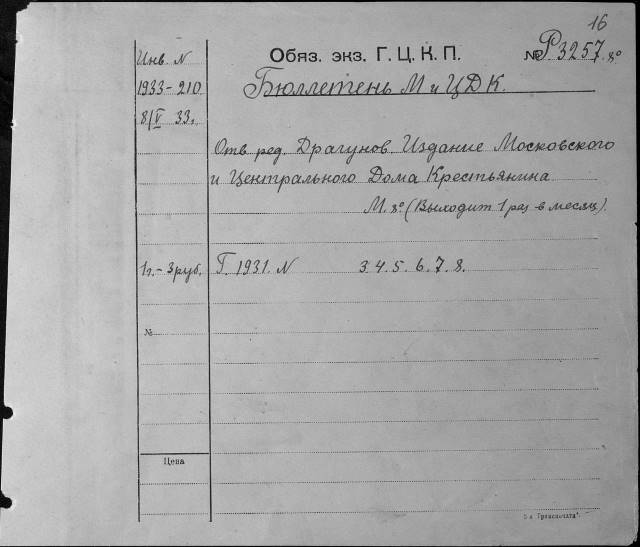 16
Обяз. экз. Г. Ц. К. П. № Р3257. 8°
Инв. N
1933-210
8/V 33г.
Бюллетень М и ЦДК.
Отв. ред. Драгунов. Издание Московского
и Центрального Дома Крестьянина
М. 8° (Выходит 1 раз в месяц).
1г. - 3 руб. Г. 1931. N 3. 4. 5. 6. 7. 8.
№
Цена